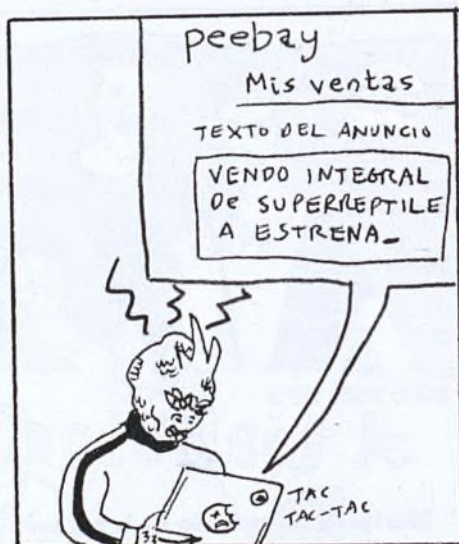 peebay
Mis ventas
TEXTO DEL ANUNCIO
VENDO INTEGRAL
De SUPERREPTILE
A ESTRENA_
TAC
TAC-TAC